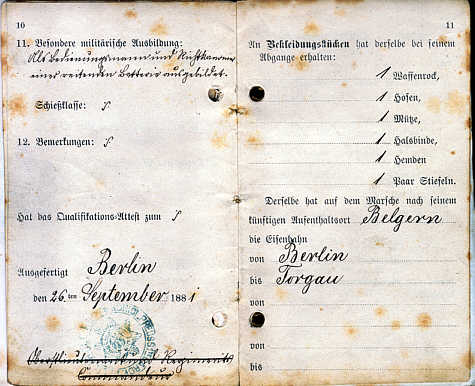 10
11. Besondere militärische Ausbildung:
Als Bedienungsmann und Richtkanonier
einer reitenden Batterie ausgebildet.
Schießklasse:
12. Bemerkungen:
Hat das Qualifikations-Attest zum
Ausgefertigt Berlin
den 26ten September 1881
Oberstlieutenant und Regiments
Commandeur
11
An Bekleidungsstücken hat derselbe bei seinem
Abgange erhalten:
1 Waffenrock,
1 Hosen,
1 Mütze,
1 Halsbinde,
1 Hemden
1 Paar Stiefeln.
Derselbe hat auf dem Marsche nach seinem
künftigen Aufenthaltsort Belgern
die Eisenbahn
von Berlin
bis Torgau
von
bis
von
bis